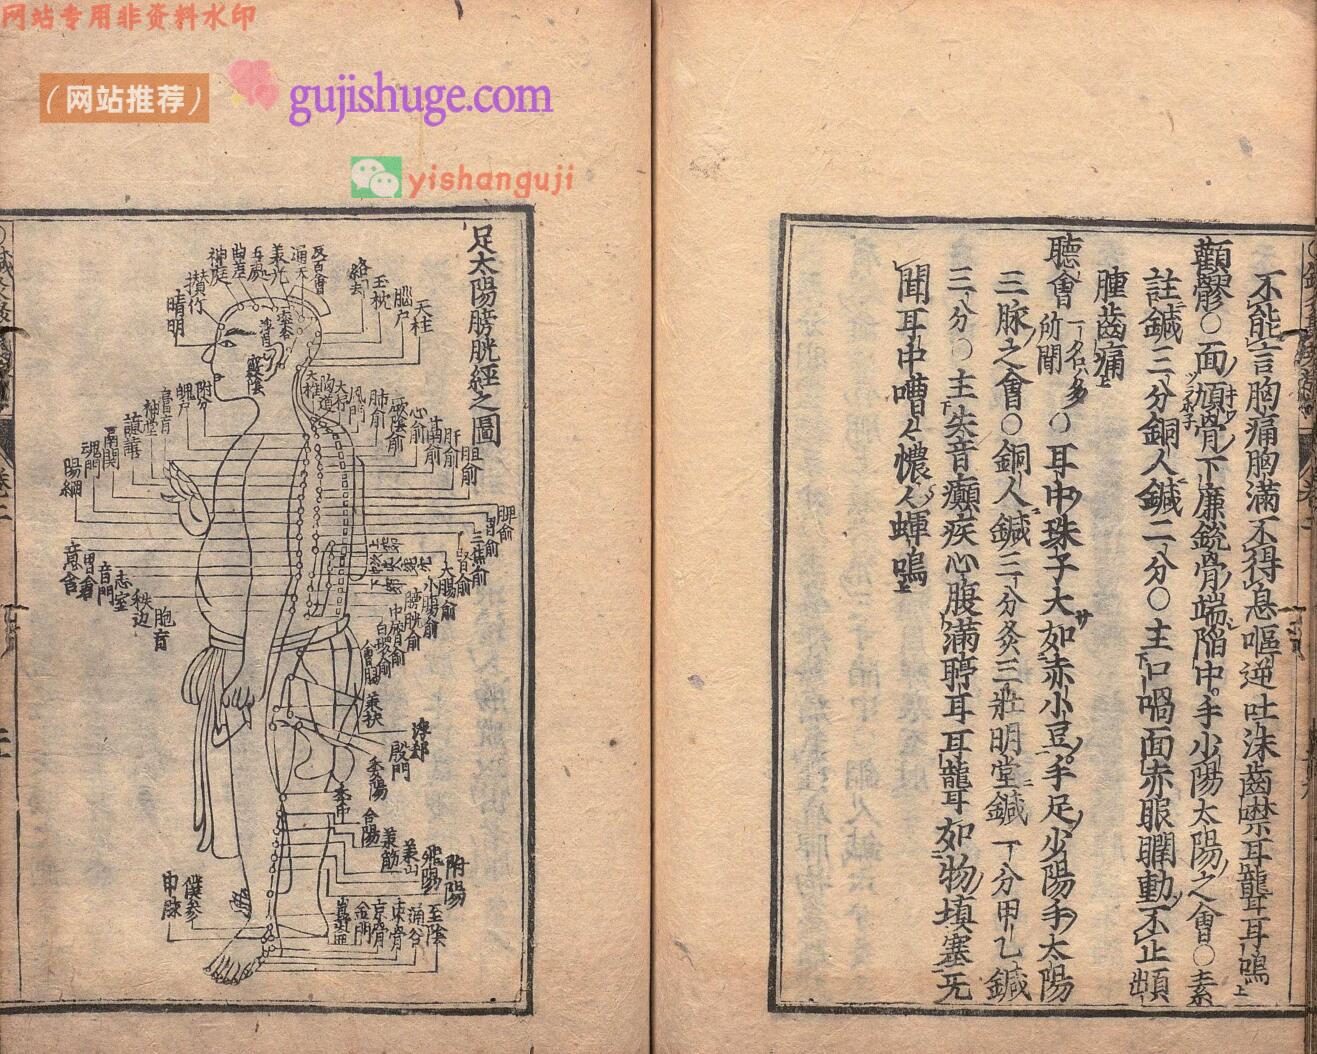 网站专用非资料水印
（网站推荐）
gujishuge.com
yishanguji
不能言胸痛胸滿不得息嘔逆吐沫齒噤耳聾耳鳴
顴髎○面頄骨下廉銳骨端陷中手少陽太陽之會○素
註鍼三分銅人鍼二分○主口喎面赤眼瞤動不止䪼
腫齒痛
聽會 所聞 一名多○耳中珠子大如赤小豆手足少陽手太陽
三脉之會○銅人鍼三分灸三壯明堂鍼一分甲乙鍼
三分○主失音癲疾心腹滿聤耳耳聾耳如物填塞无
聞耳中嘈〻憹〻蟬鳴
足太陽膀胱經之圖
天柱
腦戶
玉枕
絡去
百會
通天
五處
曲差
神庭
攅竹
睛明
附分
魄戶
神堂
譩譆
膈関
魂門
陽綱
意舍
胃倉
肓門
志室
秩边
胞肓
大杼
風門
肺俞
厥陰俞
心俞
肝俞
胆俞
脾俞
胃俞
三焦俞
腎俞
大腸俞
小腸俞
膀胱俞
中膂俞
白環俞
浮郄
殷門
委陽
委中
合陽
承筋
承山
飛陽
附陽
僕参
申脉
金門
京骨
束骨
通谷
至陰